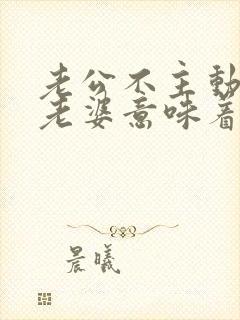 老公不主动
老婆意味着
晨曦